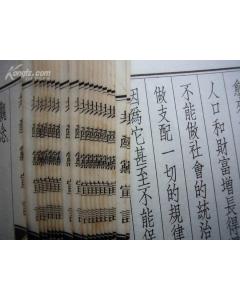 人口和財富增長得
不能做社會的統治
做支配一切的規律
因爲它甚至不能保
共產黨宣言
觀念
Kongfz.com